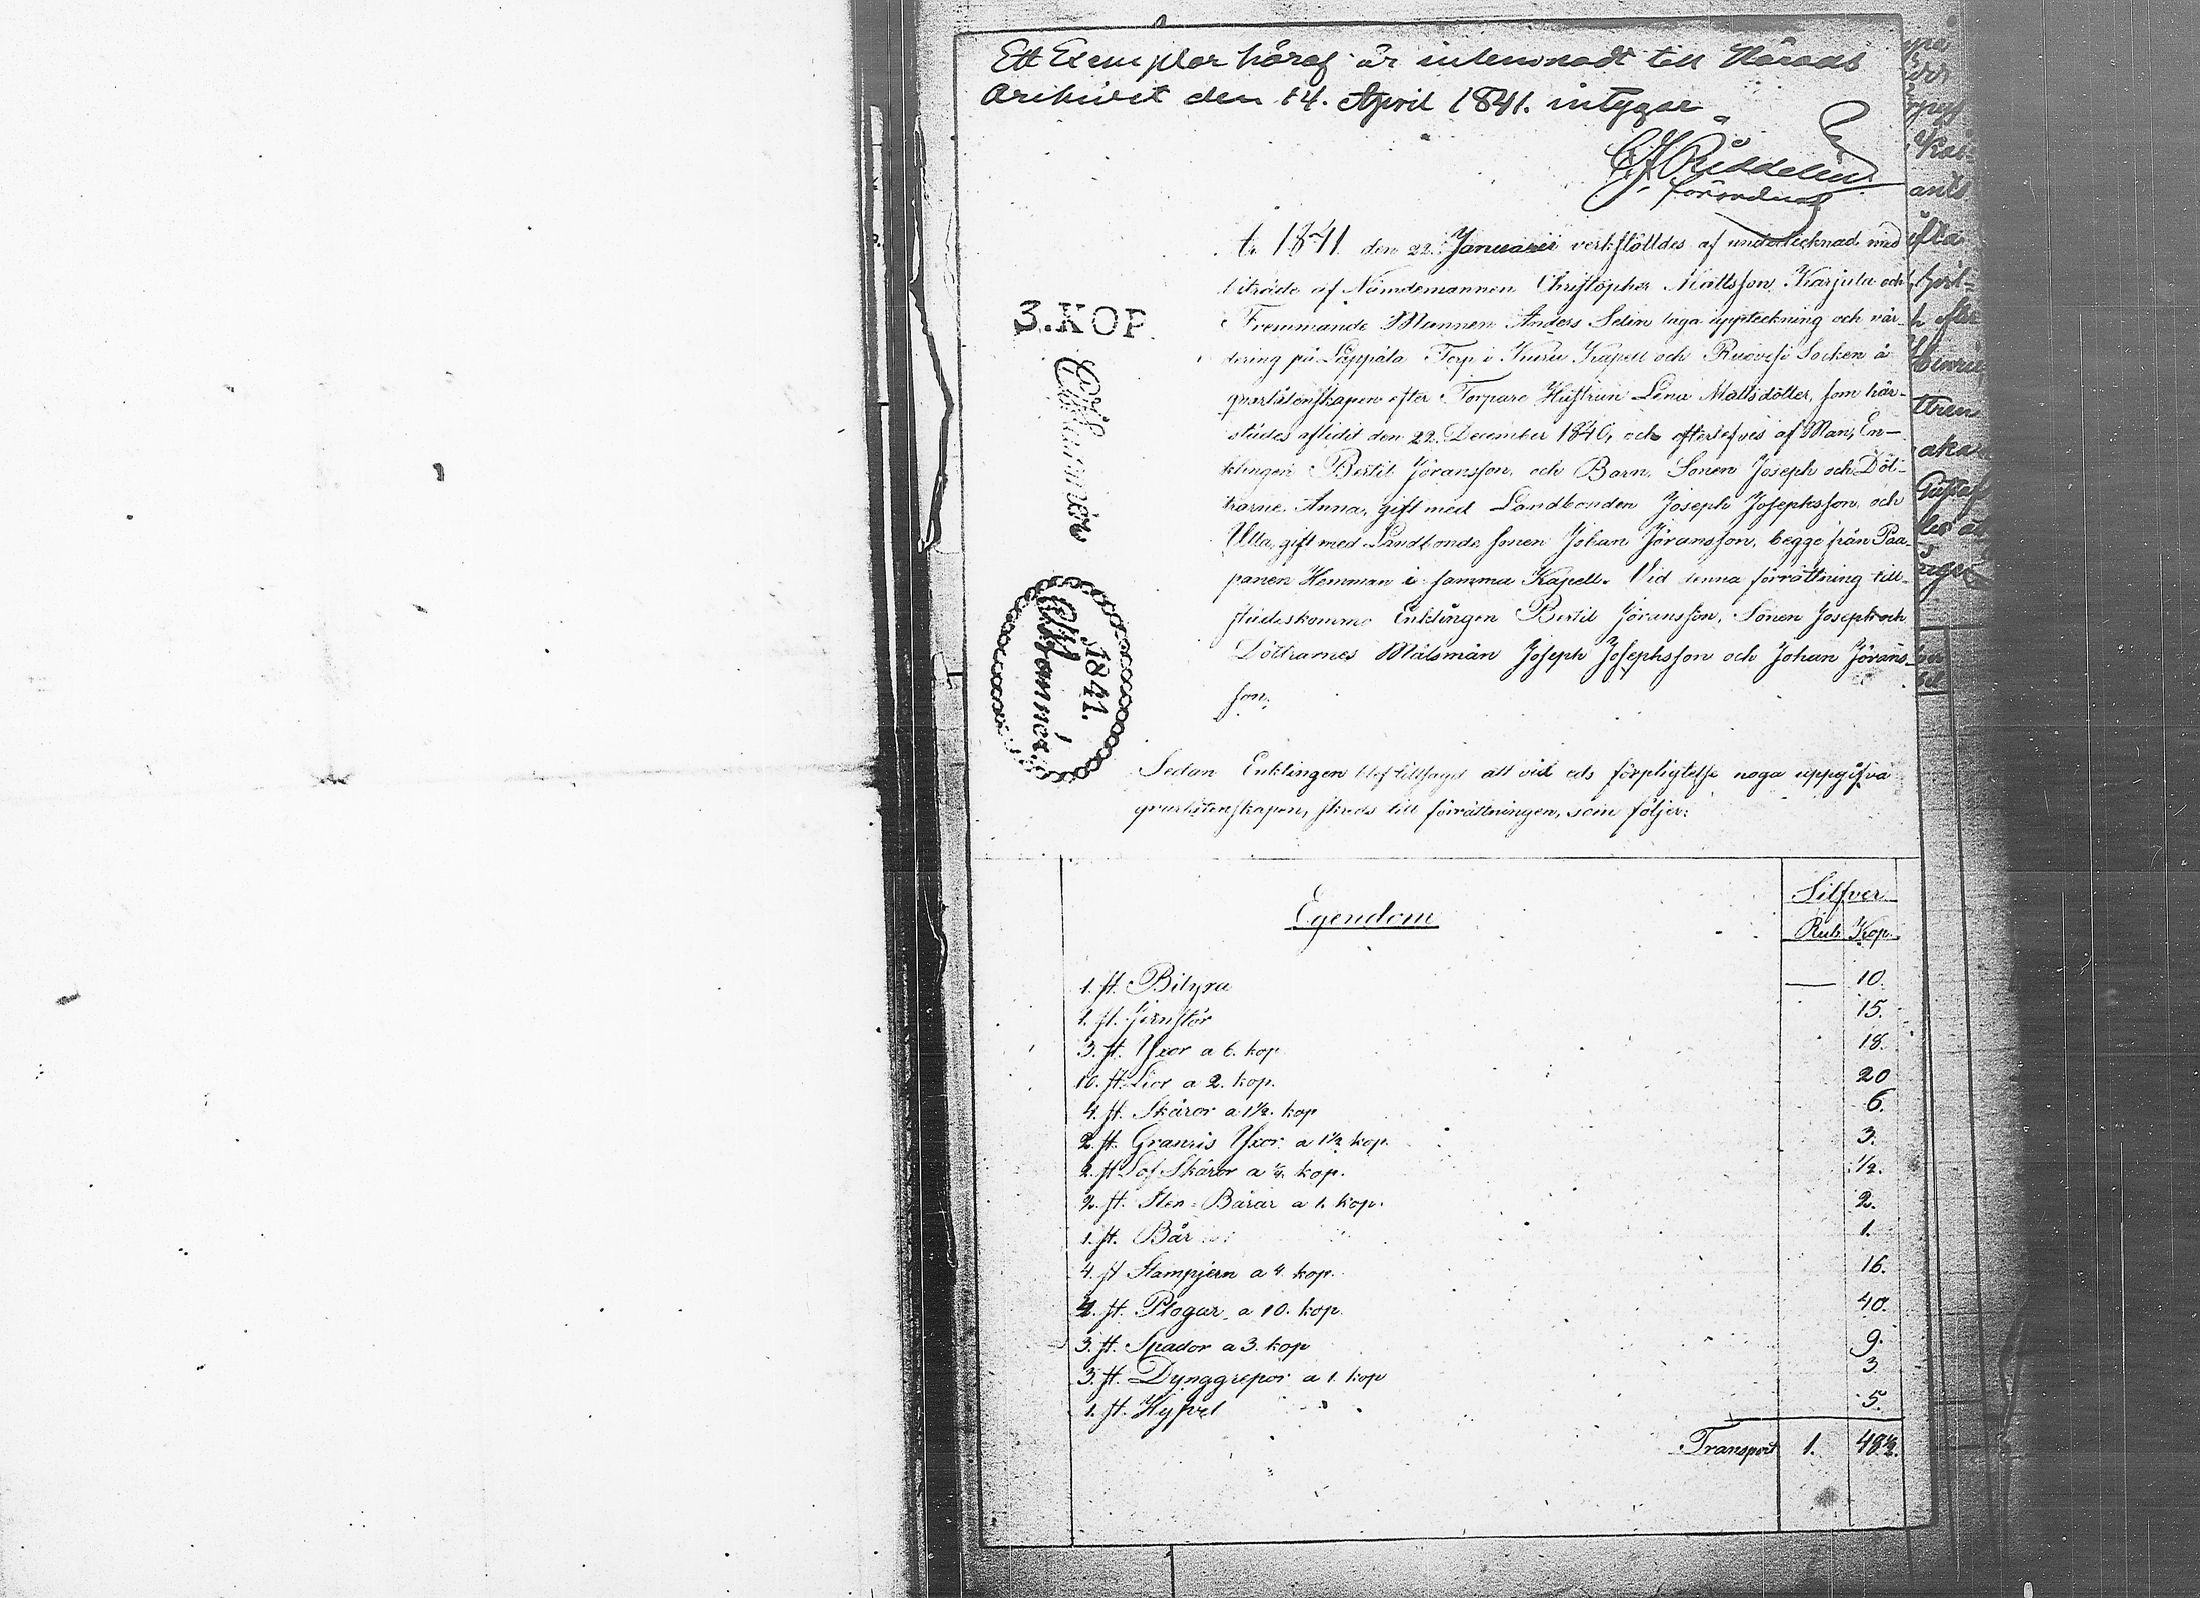 Ett Exemplar häraf är inlemnadt till Härads
Arkivet den 14. April 1841. intygar
förordnad
År 1841. den 22. Januarii verkställdes af undertecknad med
biträde af Nämdemannen Christopher Mattsson Karjula och
Fremmande Mannen Anders Selin laga uppteckning och vär-
dering på Lappala Torp i Kuru Kapell och Ruovesi Socken å
qvarlåtenskapen efter Torpare Hustrun Lena Mattsdotter, som här-
städes aflidit den 22. December 1840, och efterlefves af Man, En-
klingen Bertil Jöransson, och Barn, Sonen Joseph och Döt-
trarne Anna, gift med Landbonden Joseph Josephsson, och
Ulla, gift med Landbonde sonen Johan Jöransson, begge från Paa-
panen Hemman i samma Kapell. Vid denna förrättning till-
städeskommo Enklingen Bertil Jöransson, Sonen Joseph och
Döttrarnes Målsmän Joseph Josephsson och Johan Jörans-
son.
3. KOP.
1841.
Sedan Enklingen blef tillsagd att vid eds förpligtelse noga uppgifva
qvarlåtenskapen, skreds till förrättningen, som följer:
Egendom
Silfver
Rub. Kop.
1. st. Bilyxa — 10.
1. st. Jernstör 15.
3. st. Yxor a 6. kop 18.
10. st. Lior a 2. kop. 20
4. st. Skäror a 1½. kop 6.
2. st. Granris Yxor a 1½ kop. 3.
2. st Löf Skäror a ¼. kop. ½.
2. st. Sten-Bårar a 1. kop. 2.
1. st. Bår 1.
4. st Stampjern a 4. kop. 16.
4. st. Plogar a 10. kop. 40.
3. st. Spador a 3. kop 9.
3. st. Dynggrepor a 1. kop 3
1. st. Hyfvel 5.
Transport 1. 48½.